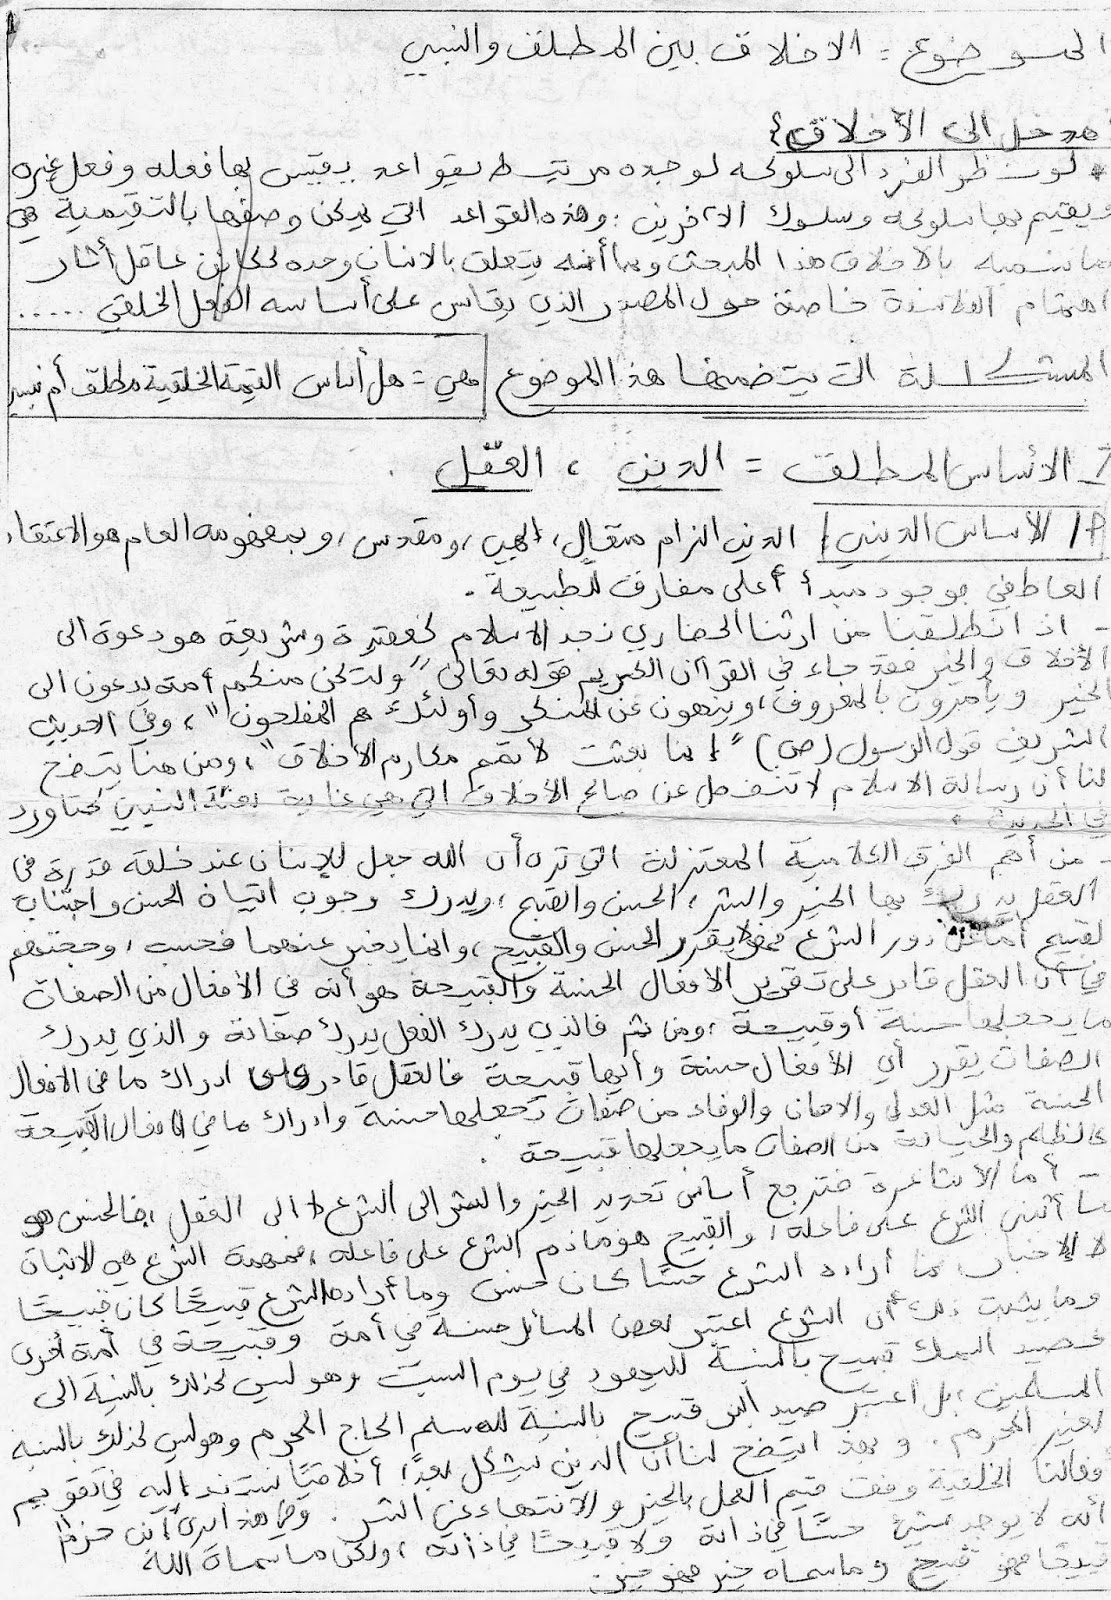 الموضوع = الاخلاق بين المطلق والنسبي
مدخل الى الأخلاق:
لو نظر الفرد الى سلوكه لوجده مرتبط بقواعد يقيس بها فعله وفعل غيره
ويقيم بها سلوكه وسلوك الآخرين، وهذه القواعد التي يمكن وصفها بالتقييمية هي
ما نسميه بالاخلاق هذا المبحث وبما أنه يتعلق بالانسان وحده ككائن عاقل أثار
اهتمام الفلاسفة خاصة حول المصدر الذي يقاس على أساسه الفعل الخلقي .....
المشكلة التي يتضمنها هذا الموضوع هي = هل أساس القيمة الخلقية مطلق أم نسبي
I_ الأساس المطلق = الدين ، العقل
A/ الأساس الديني/ الدين الزام متعالٍ، الهي، ومقدس، وبمفهومه العام هو الاعتقاد
العاطفي بوجود مبدأ أعلى مفارق للطبيعة.
- اذا انطلقنا من ارثنا الحضاري نجد الاسلام كعقيدة وشريعة هو دعوة الى
الأخلاق والخير فقد جاء في القرآن الكريم قوله تعالى "ولتكن منكم أمة يدعون الى
الخير ويأمرون بالمعروف، وينهون عن المنكر وأولئك هم المفلحون"، وفي الحديث
الشريف قول الرسول (ص) "إنما بعثت لأتمم مكارم الأخلاق"، ومن هنا يتضح
لنا أن رسالة الاسلام لا تنفصل عن صالح الأخلاق التي هي غاية بعثة النبي كما ورد
في الحديث.
- من أهم الفرق الكلامية المعتزلة التي ترى أن الله جعل للإنسان عند خلقه قدرة في
العقل يدرك بها الخير والشر، الحسن والقبح، ويدرك وجوب اتيان الحسن واجتناب
القبيح أما عن دور الشرع فهو لا يقرر الحسن والقبيح، وانما يخبر عنهما فحسب، وحجتهم
في أن العقل قادر على تقرير الافعال الحسنة والقبيحة هو أنه في الأفعال من الصفات
ما يجعلها حسنة أو قبيحة، ومن ثم فالذي يدرك الفعل يدرك صفاته والذي يدرك
الصفات يقرر أي الأفعال حسنة وأيها قبيحة فالعقل قادر على ادراك ما في الافعال
الحسنة مثل العدل والامان والوفاء من صفات تجعلها حسنة وادراك ما في الافعال القبيحة
كالظلم والخيانة من الصفات ما يجعلها قبيحة.
- أما الأشاعرة فترجع أساس تحديد الخير والشر الى الشرع لا الى العقل، فالحسن هو
ما أثنى الشرع على فاعله، والقبيح هو ما ذم الشرع على فاعله، فمهمة الشرع هي الاثبات
لا الإخبار فما أراده الشرع حسنًا كان حسن وما أراده الشرع قبيحًا كان قبيحًا
وما يثبت ذلك أن الشرع اعتبر بعض المسائل حسنة في أمة وقبيحة في أمة أخرى
فصيد السمك قبيح بالنسبة لليهود في يوم السبت وهو ليس كذلك بالنسبة الى
المسلمين، بل اعتبر صيد البر قبيح بالنسبة للمسلم الحاج المحرم وهو ليس كذلك بالنسبة
لغير المحرم. وبهذا يتضح لنا أن الدين يشكل بعدًا أخلاقيًا نستند اليه في تقويم
أفعالنا الخلقية وفقت قيم العمل بالخير والانتهاء عن الشر. وفي هذا يرى ابن حزم
أنه لا يوجد شيئ حسنًا في ذاته ولا قبيحًا في ذاته، ولكن ما سماه الله
قبيحًا فهو قبيح وما سماه خير فهو خير.